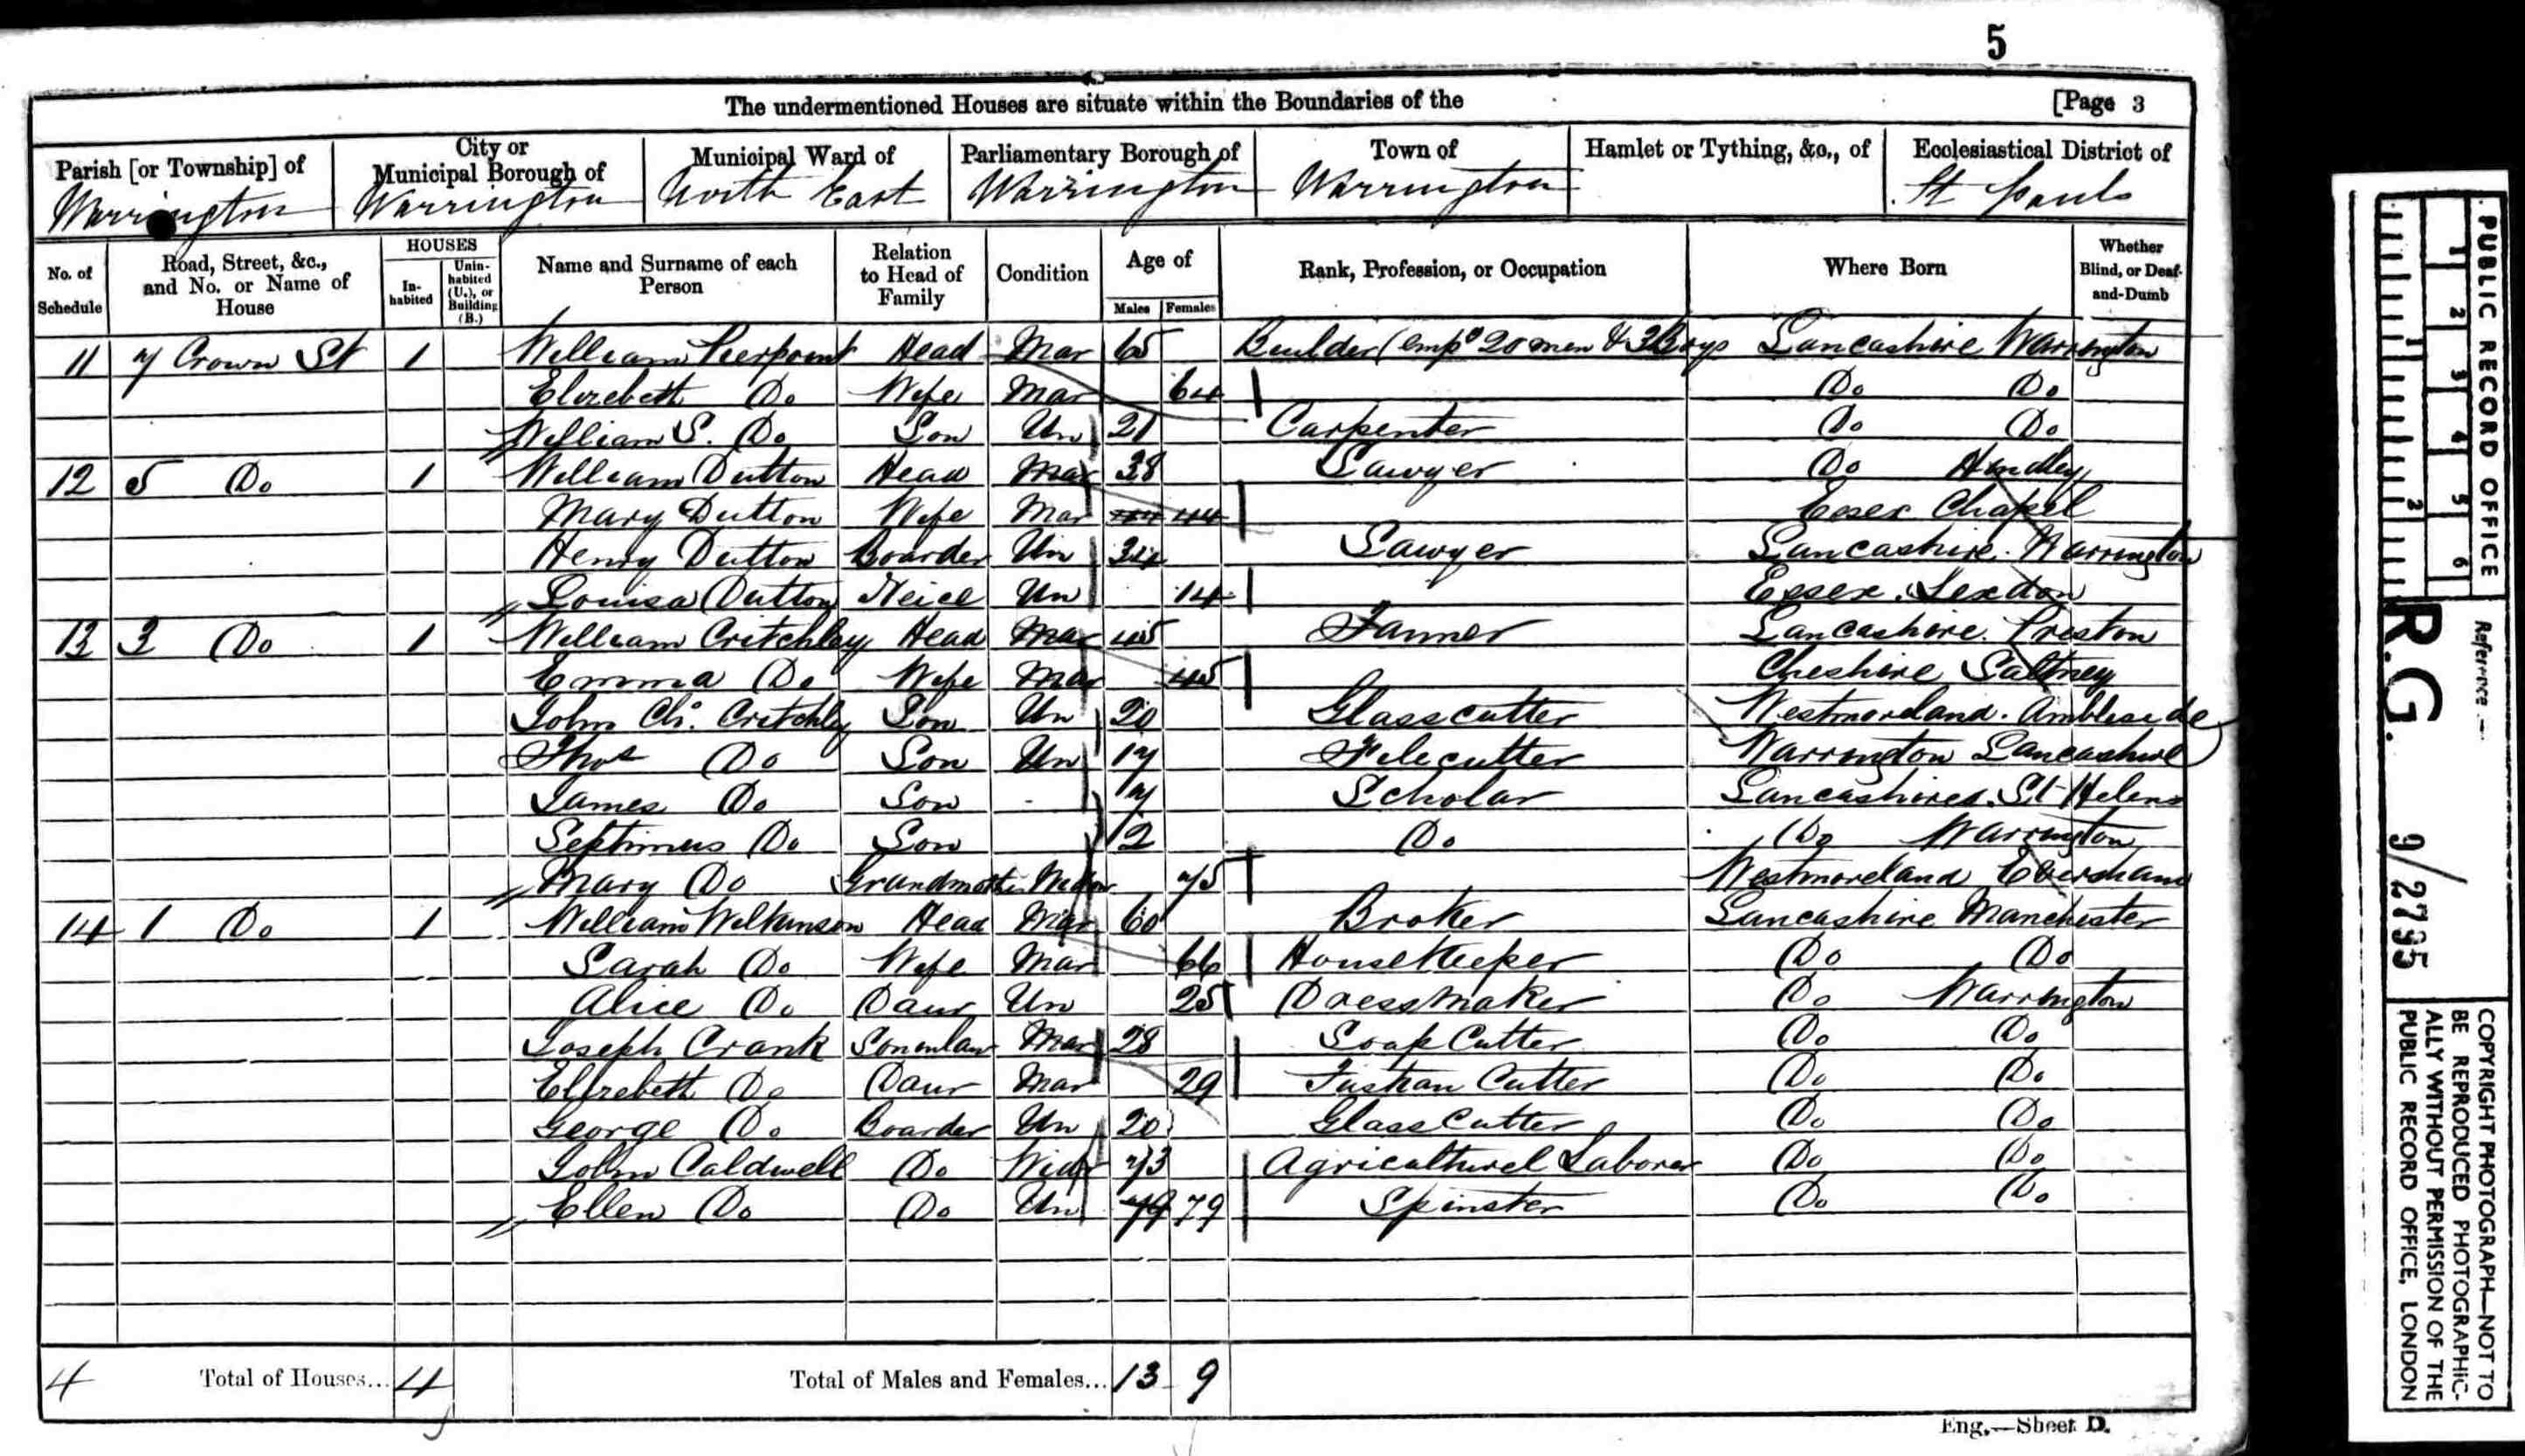 5
The undermentioned Houses are situate within the Boundaries of the [Page 3
Parish [or Township] of City or Municipal Borough of Municipal Ward of Parliamentary Borough of Town of Hamlet or Tything, &c., of Ecclesiastical District of
Warrington Warrington North East Warrington Warrington St Pauls
No. of Schedule Road, Street, &c., and No. or Name of House HOUSES Inhabited Uninhabited (U.), or Building (B.) Name and Surname of each Person Relation to Head of Family Condition Age of Males Females Rank, Profession, or Occupation Where Born Whether Blind, or Deaf-and-Dumb
11 7 Crown St 1 William Pierpoint Head Mar 65 Builder (empg 20 men & 3 Boys Lancashire Warrington
Elizebeth Do Wife Mar 64 Do Do
William S. Do Son Un 21 Carpenter Do Do
12 5 Do 1 William Dutton Head Mar 38 Sawyer Do Hindley
Mary Dutton Wife Mar 44 44 Essex Chapel
Henry Dutton Boarder Un 34 Sawyer Lancashire. Warrington
Louisa Dutton Neice Un 14 Essex. Lexdon
13 3 Do 1 William Critchley Head Mar 45 Lancashire. Preston
Emma Do Wife Mar 45 Cheshire Saltney
John Ch. Critchley Son Un 20 Glasscutter Westmoreland. Ambleside
Thos Do Son Un 17 Filecutter Warrington Lancashire
James Do Son 7 Scholar Lancashire. St Helens
Septimus Do Son 2 Do Do Warrington
Mary Do Grandmother Widow 75 Westmoreland
14 1 Do 1 William Wilkinson Head Mar 60 Broker Lancashire Manchester
Sarah Do Wife Mar 66 Housekeeper Do Do
Alice Do Daur Un 25 Dressmaker Do Warrington
Joseph Crank Soninlaw Mar 28 Soap Cutter Do Do
Elizebeth Do Daur Mar 29 Fustian Cutter Do Do
George Do Boarder Un 20 Glass Cutter Do Do
John Caldwell Do Widr 73 Agricultural Laborer Do Do
Ellen Do Do Un 79 79 Spinster Do Do
4 Total of Houses... 4 Total of Males and Females... 13 9
Eng.—Sheet D.
PUBLIC RECORD OFFICE
1 2 3 4 5 6
1 2
Reference :—
R.G. 9/2795
COPYRIGHT PHOTOGRAPH—NOT TO
BE REPRODUCED PHOTOGRAPHIC-
ALLY WITHOUT PERMISSION OF THE
PUBLIC RECORD OFFICE, LONDON